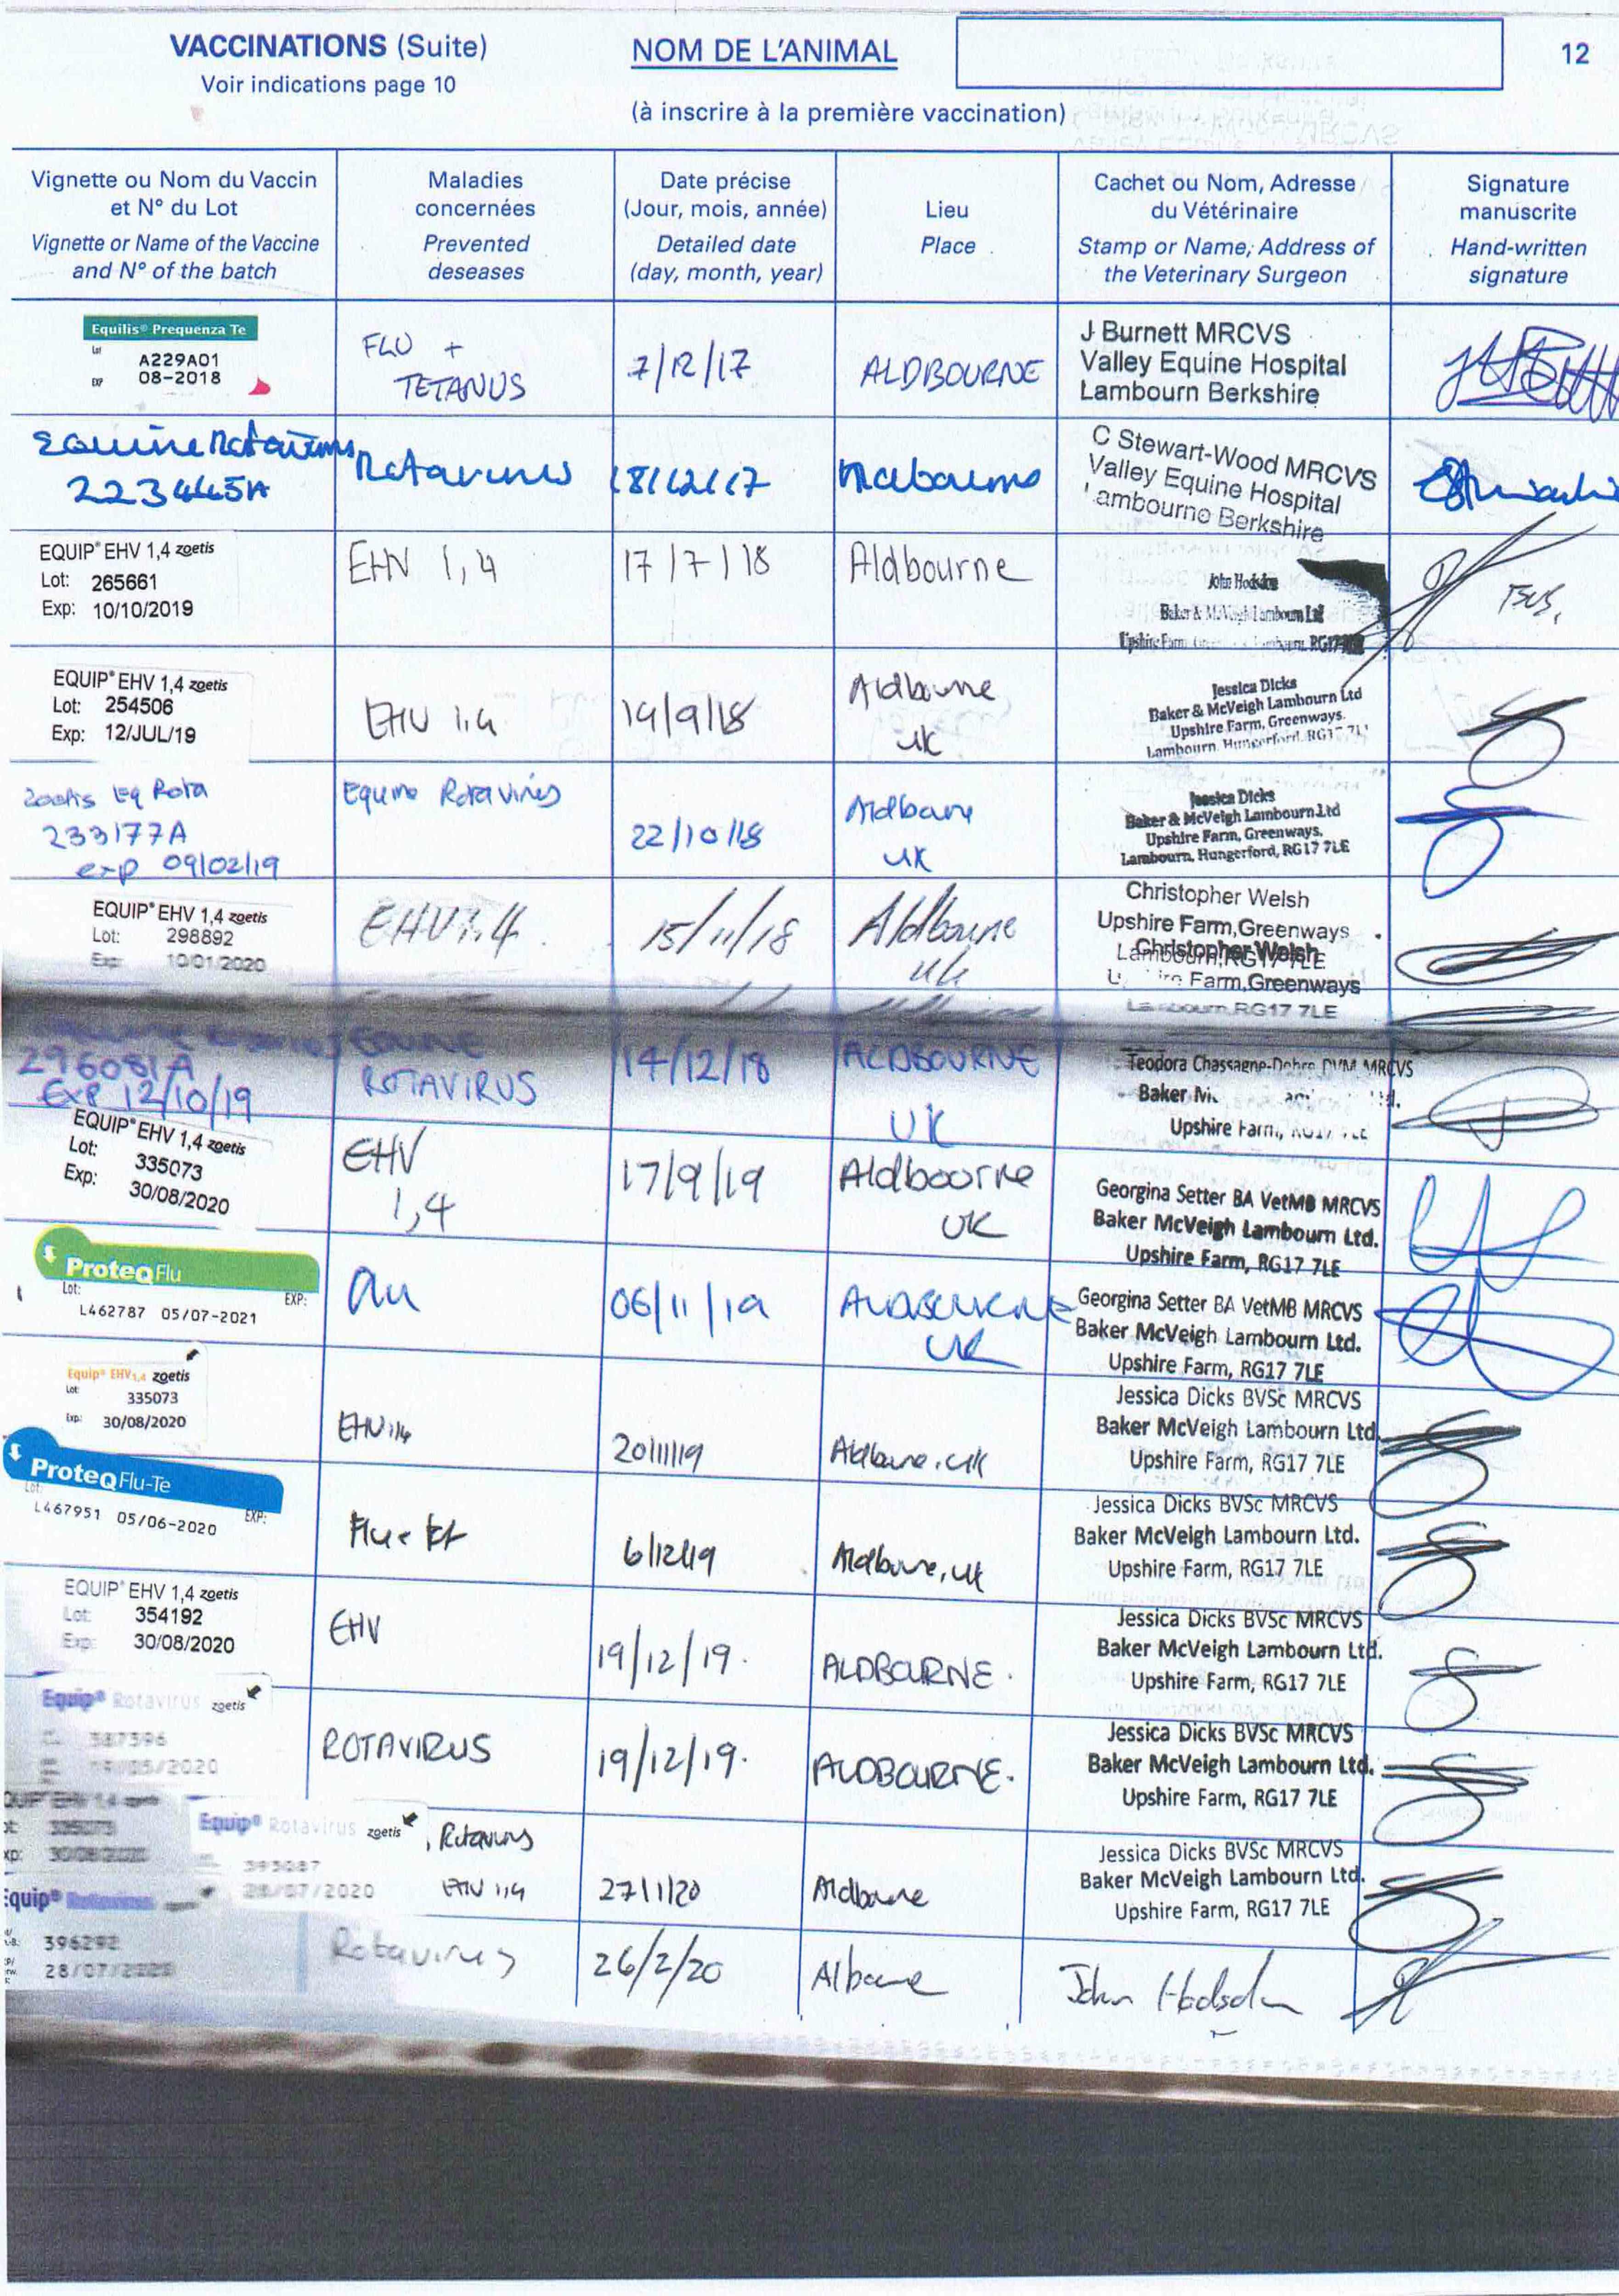 VACCINATIONS (Suite)
Voir indications page 10
NOM DE L'ANIMAL
(à inscrire à la première vaccination)
12
Vignette ou Nom du Vaccin
et N° du Lot
Vignette or Name of the Vaccine
and N° of the batch
Maladies
concernées
Prevented
deseases
Date précise
(Jour, mois, année)
Detailed date
(day, month, year)
Lieu
Place
Cachet ou Nom, Adresse
du Vétérinaire
Stamp or Name, Address of
the Veterinary Surgeon
Signature
manuscrite
Hand-written
signature
Equilis® Prequenza Te
Lot
A229A01
EXP
08-2018
FLU +
TETANUS
7/12/17
ALDBOURNE
J Burnett MRCVS
Valley Equine Hospital
Lambourn Berkshire
Equine Rotavirus
223445A
Rotavirus
18/12/17
C Stewart-Wood MRCVS
Valley Equine Hospital
ambourne Berkshire
EQUIP® EHV 1,4 zoetis
Lot: 265661
Exp: 10/10/2019
EHV 1,4
17/7/18
Aldbourne
John Hodsdon
Baker & McVeigh Lambourn Ltd
Upshire Farm RG17
EQUIP® EHV 1,4 zoetis
Lot: 254506
Exp: 12/JUL/19
EHV 1.4
19/9/18
Aldbourne
UK
Jessica Dicks
Baker & McVeigh Lambourn Ltd
Upshire Farm, Greenways.
Lambourn, Hungerford, RG17 7L
Zoetis Eq Rota
233177A
exp 09/02/19
Equine Rotavirus
22/10/18
Aldbourne
UK
Jessica Dicks
Baker & McVeigh Lambourn Ltd
Upshire Farm, Greenways,
Lambourn, Hungerford, RG17 7LE
EQUIP® EHV 1,4 zoetis
Lot: 298892
Exp: 10/01/2020
EHV 1.4
15/11/18
Aldbourne
UK
Christopher Welsh
Upshire Farm,Greenways
Lambourn,RG17 7LE
Christopher Welsh
Farm,Greenways
Lambourn RG17 7LE
296081A
Exp 12/10/19
EQUINE
ROTAVIRUS
14/12/18
ALDBOURNE
UK
Teodora Chassagne-Dobre DVM MRCVS
Baker
Upshire Farm,
EQUIP® EHV 1,4 zoetis
Lot: 335073
Exp: 30/08/2020
EHV
1,4
17/9/19
Aldbourne
UK
Georgina Setter BA VetMB MRCVS
Baker McVeigh Lambourn Ltd.
Upshire Farm, RG17 7LE
ProteqFlu
Lot: EXP:
L462787 05/07-2021
flu
06/11/19
ALDBOURNE
UK
Georgina Setter BA VetMB MRCVS
Baker McVeigh Lambourn Ltd.
Upshire Farm, RG17 7LE
Equip® EHV1,4 zoetis
Lot: 335073
Exp: 30/08/2020
EHV 1,4
20/11/19
Aldbourne, UK
Jessica Dicks BVSc MRCVS
Baker McVeigh Lambourn Ltd
Upshire Farm, RG17 7LE
ProteqFlu-Te
Lot: EXP:
L467951 05/06-2020
Flu
6/12/19
Aldbourne, UK
Jessica Dicks BVSc MRCVS
Baker McVeigh Lambourn Ltd.
Upshire Farm, RG17 7LE
EQUIP® EHV 1,4 zoetis
Lot: 354192
Exp: 30/08/2020
EHV
19/12/19.
ALDBOURNE.
Jessica Dicks BVSc MRCVS
Baker McVeigh Lambourn Ltd.
Upshire Farm, RG17 7LE
Equip® Rotavirus zoetis
/05/2020
ROTAVIRUS
19/12/19.
ALDBOURNE.
Jessica Dicks BVSc MRCVS
Baker McVeigh Lambourn Ltd.
Upshire Farm, RG17 7LE
QUIP® EHV 1,4
335073
30/08/2020
Equip® Rotavirus zoetis
28/07/2020
Rotavirus
EHV 1,4
27/1/20
Aldbourne
Jessica Dicks BVSc MRCVS
Baker McVeigh Lambourn Ltd.
Upshire Farm, RG17 7LE
Equip® Rotavirus
396292
28/07/2020
Rotavirus
26/2/20
John Hodsdon